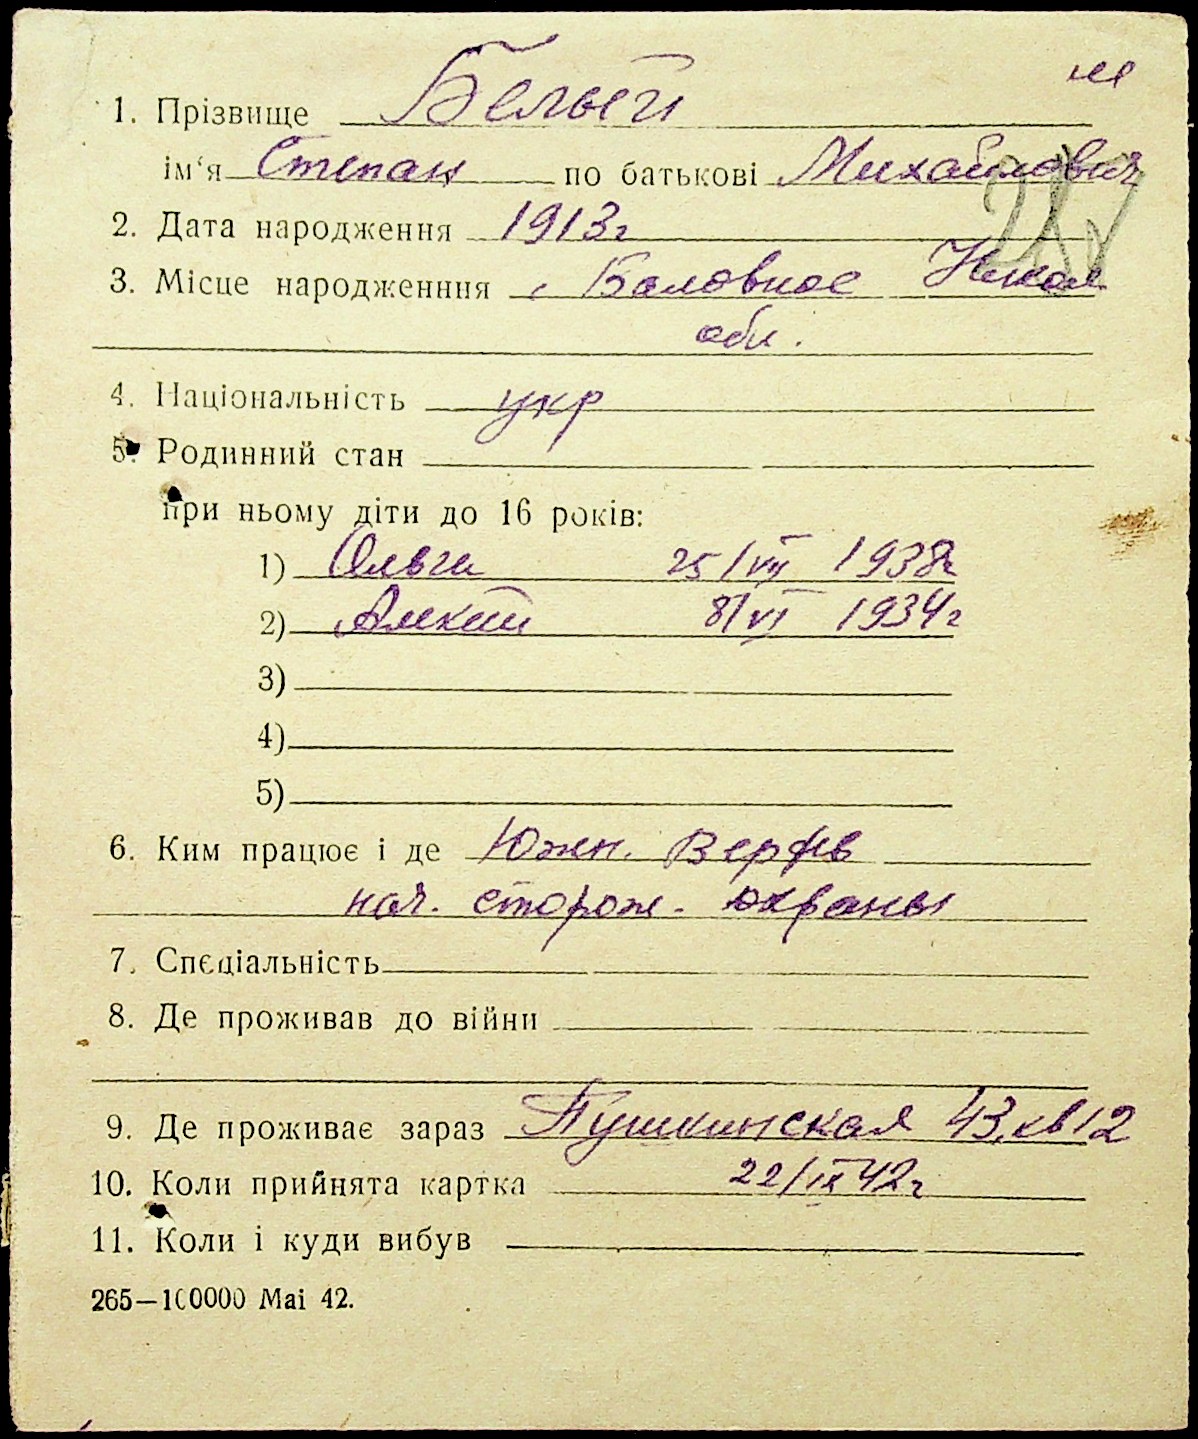 м
1. Прізвище Белый
ім‘я Степан по батькові Михайлович
2. Дата народження 1913г
3. Місце народженння с. Баловное Никол
обл.
4. Національність укр
5. Родинний стан
при ньому діти до 16 років:
1) Ольга 25/VII 1938г
2) Алексій 8/VI 1934г
3)
4)
5)
6. Ким працює і де Южн. Верфь
нач. сторож. охраны
7. Спєціальність
8. Де проживав до війни
9. Де проживає зараз Пушкинская 43, кв 12
10. Коли прийнята картка 22/IX 42г
11. Коли і куди вибув
265—100000 Mai 42.